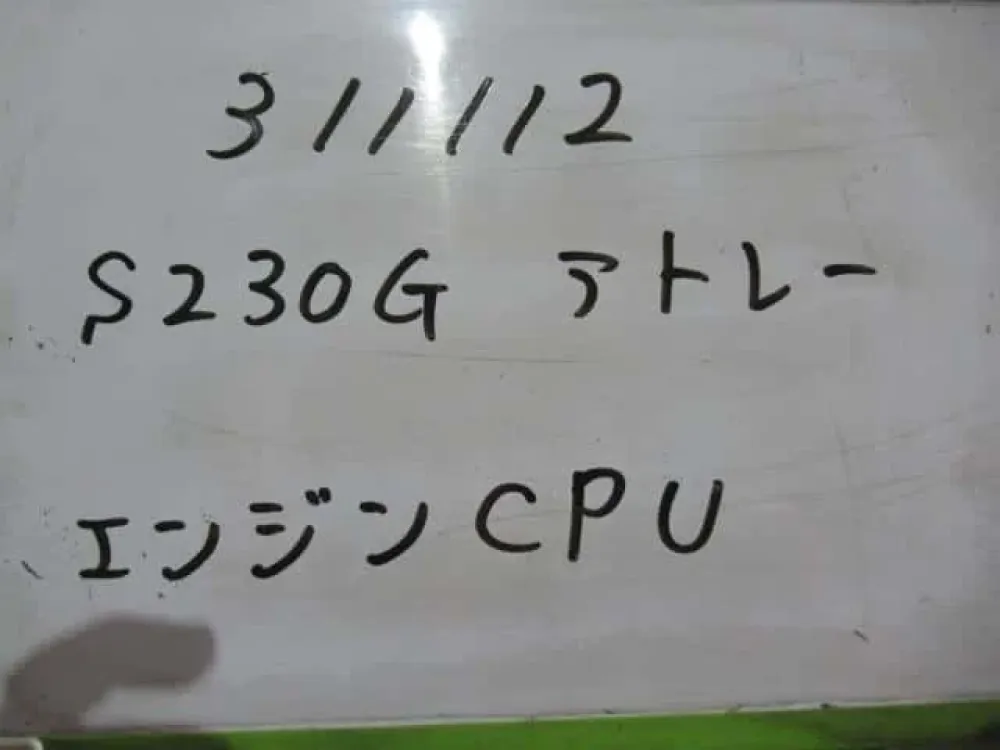 311112
S230G アトレー
エンジンCPU